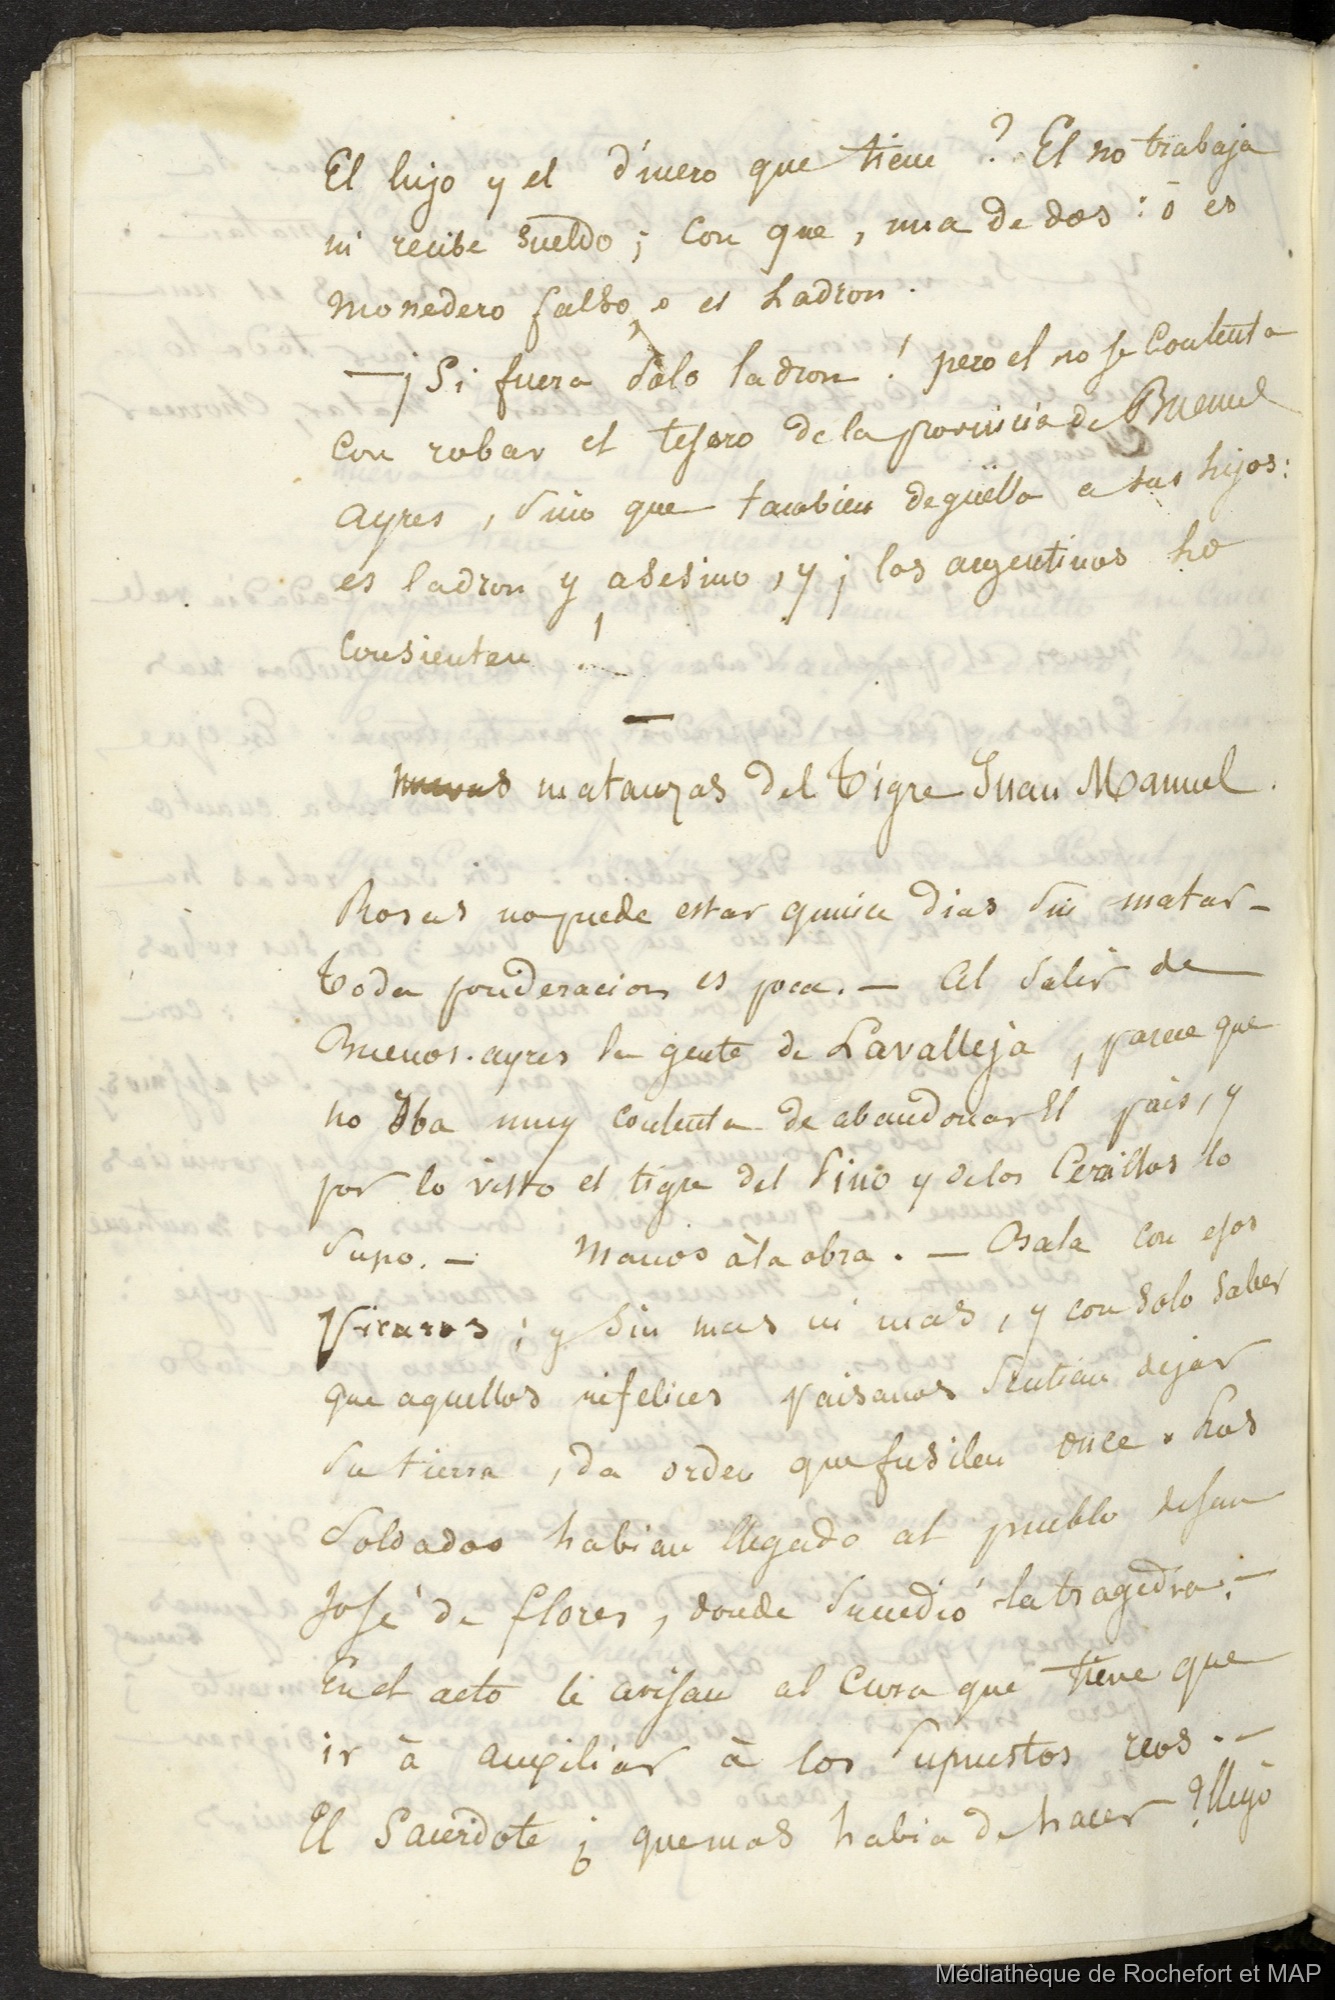 El lujo y el dinero que tiene ? El no trabaja
ni recibe sueldo ; con que , una de dos : ó es
monedero falso, o es Ladron .
— ¡ Si fuera solo ladron ! pero el no se contenta
con robar el tesoro de la provincia de Buenus
ayres , sino que tambien degüella a sus hijos :
es ladron y asesino , y ¡ los argentinos lo
consienten !
—
nuevas matanzas del Tigre Juan Manuel .
Rosas no puede estar quince dias sin matar -
Toda ponderacion es poca . — Al salir de
Buenos-ayres la gente de Lavalleja , parece que
no iba muy contenta de abandonar el pais , y
por lo visto el tigre del Pino y de los Cerrillos lo
supo . — Manos à la obra . — con esos
; y sin mas ni mas , y con solo saber
que aquellos infelices paisanos sentian dejar
su tierra , da orden que fusilen once . Los
soldados habian llegado al pueblo de san
José de flores , donde sucedió la tragedia . —
En el acto le avisan al Cura que tiene que
ir à auxiliar à los supuestos reos . —
El Sacerdote ¿ que mas habia de hacer ? llegó
Médiathèque de Rochefort et MAP